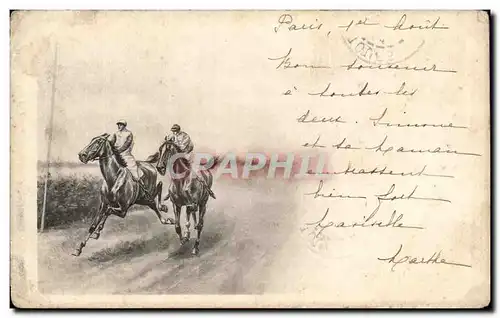 Paris, 1er Août
Bon souvenir
à toutes les
deux. Simone
et sa maman
embrassent
bien fort
Marthe
CARPHILA